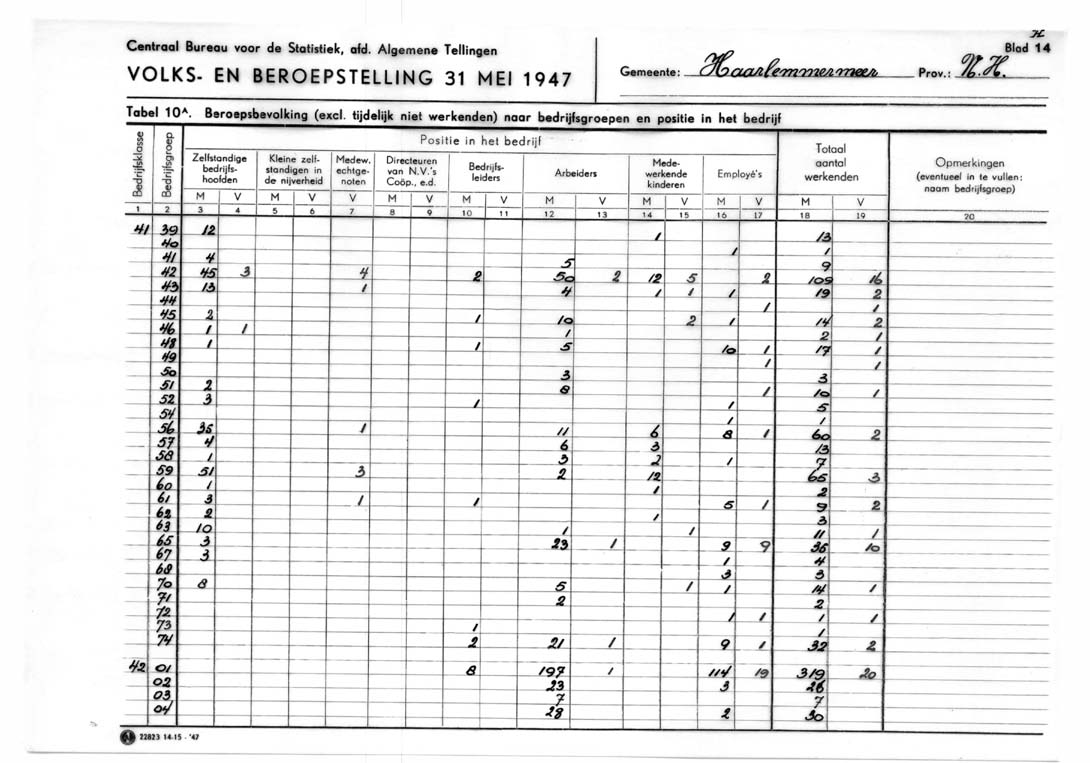 H.
Blad 14
Centraal Bureau voor de Statistiek, afd. Algemene Tellingen
VOLKS- EN BEROEPSTELLING 31 MEI 1947
Gemeente: Haarlemmermeer Prov.: N.H.
Tabel 10A. Beroepsbevolking (excl. tijdelijk niet werkenden) naar bedrijfsgroepen en positie in het bedrijf
Bedrijfsklasse Bedrijfsgroep Positie in het bedrijf Totaal aantal werkenden Opmerkingen (eventueel in te vullen: naam bedrijfsgroep)
Zelfstandige bedrijfshoofden Kleine zelfstandigen in de nijverheid Medew. echtgenoten Directeuren van N.V.'s Coöp., e.d. Bedrijfsleiders Arbeiders Medewerkende kinderen Employé's
M V M V V M V M V M V M V M V M V
1 2 3 4 5 6 7 8 9 10 11 12 13 14 15 16 17 18 19 20
41 39 12 1 13
40 1 1
41 4 5 9
42 45 3 4 2 50 2 12 5 2 109 16
43 13 1 4 1 1 1 19 2
44 1 1
45 2 1 10 2 1 14 2
46 1 1 1 2 1
48 1 1 5 10 1 17 1
49 1 1
50 3 3
51 2 8 1 10 1
52 3 1 1 5
54 1 1
56 35 1 11 6 8 1 60 2
57 4 6 3 13
58 1 3 2 1 7
59 51 3 2 12 65 3
60 1 1 2
61 3 1 1 5 1 9 2
62 2 1 3
63 10 1 1 11 1
65 3 23 1 9 9 35 10
67 3 1 4
68 3 3
70 8 5 1 1 14 1
71 2 2
72 1 1 1 1
73 1 1
74 2 21 1 9 1 32 2
42 01 8 197 1 114 19 319 20
02 23 3 26
03 7 7
04 28 2 30
22823 14-15 - '47